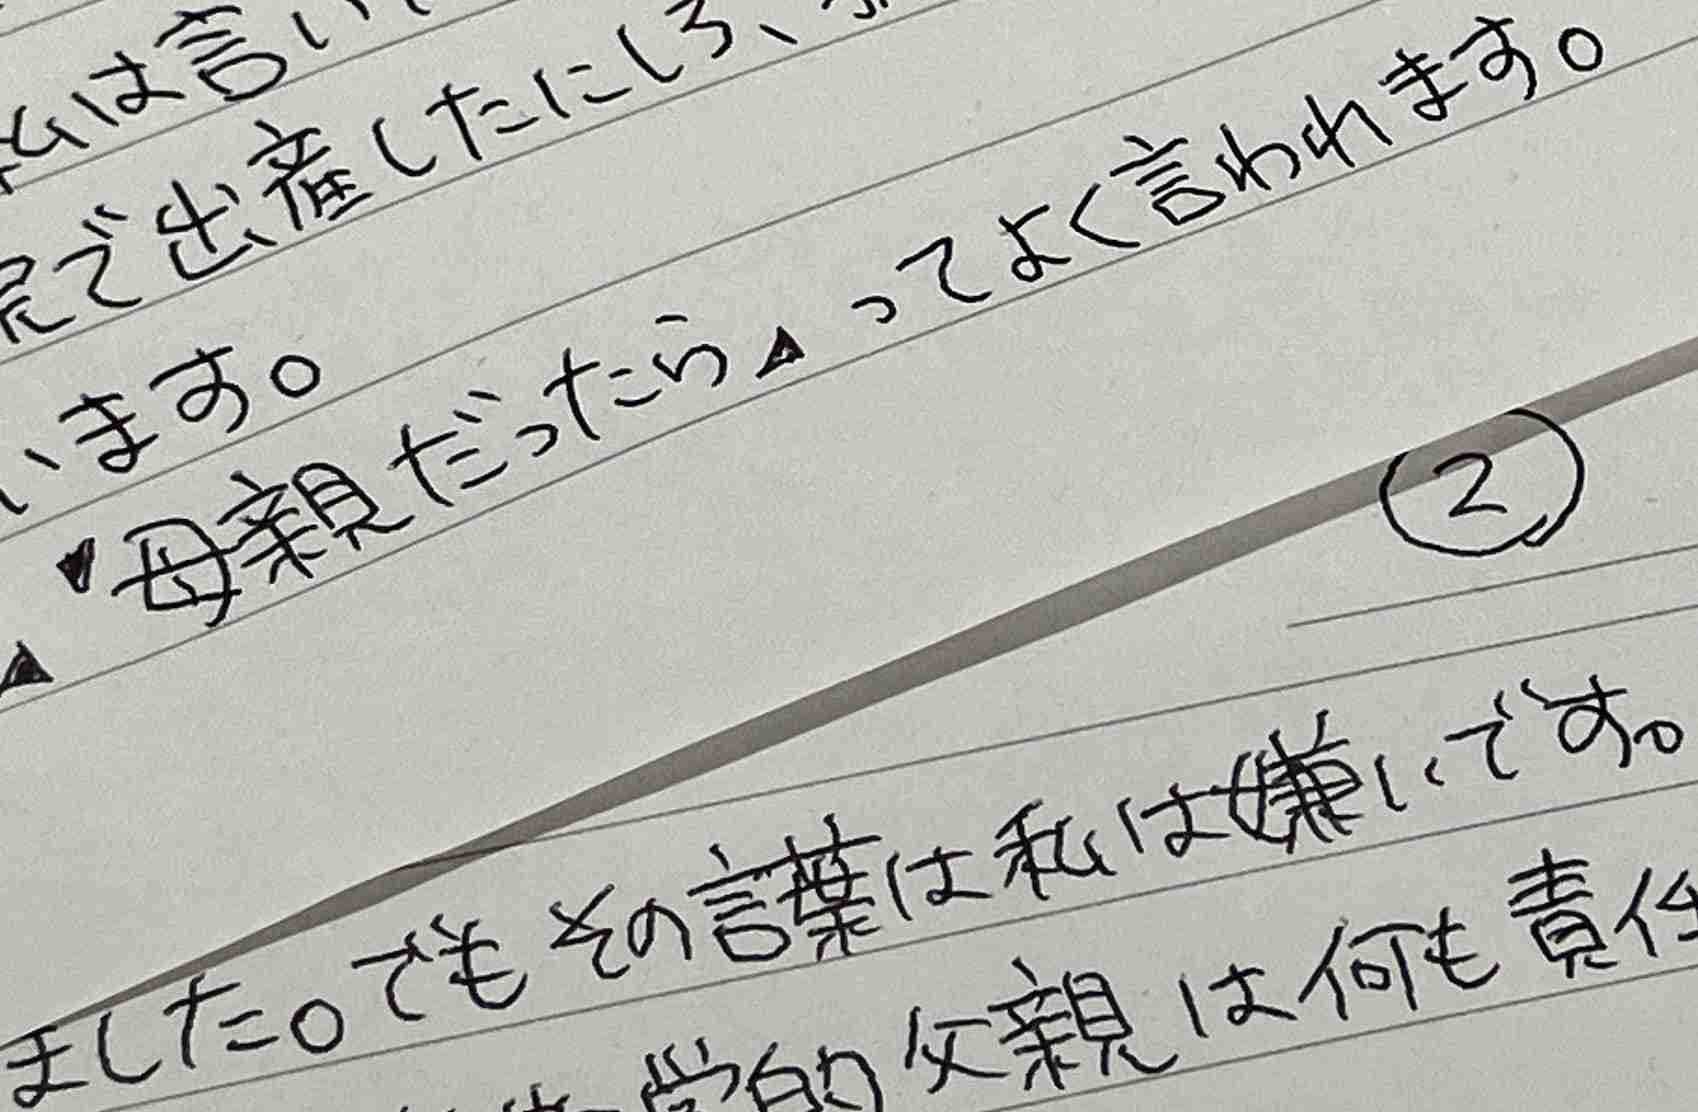 私は言い
院で出産したにしろ、
います。
"母親だったら"ってよく言われます。
②
ました。でもその言葉は私は嫌いです。
学的父親は何も責任